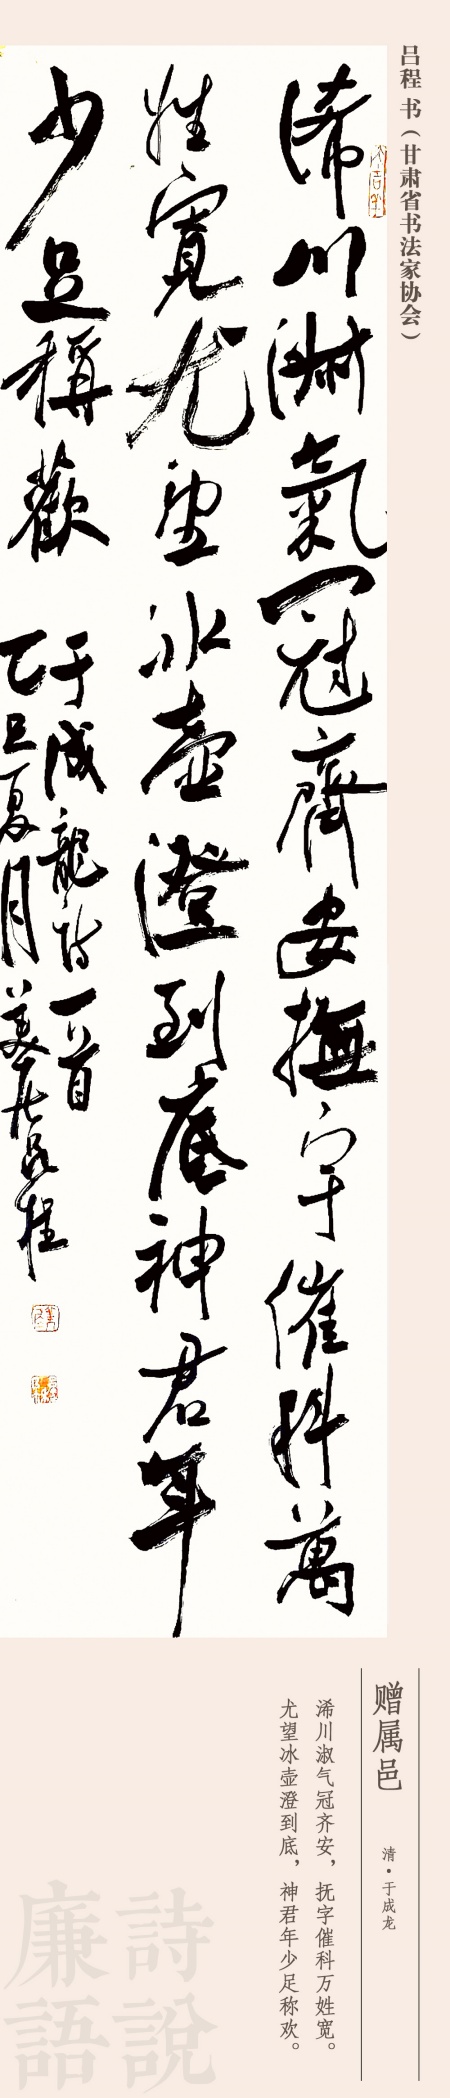 吕程 书（甘肃省书法家协会）
浠川淑氣冠齊安撫字催科萬
姓寬尤望冰壺澄到底神君年
少足稱歡
于成龍詩一首
乙巳夏月
吕程
赠属邑
清·于成龙
浠川淑气冠齐安，抚字催科万姓宽。
尤望冰壶澄到底，神君年少足称欢。
詩說
廉語